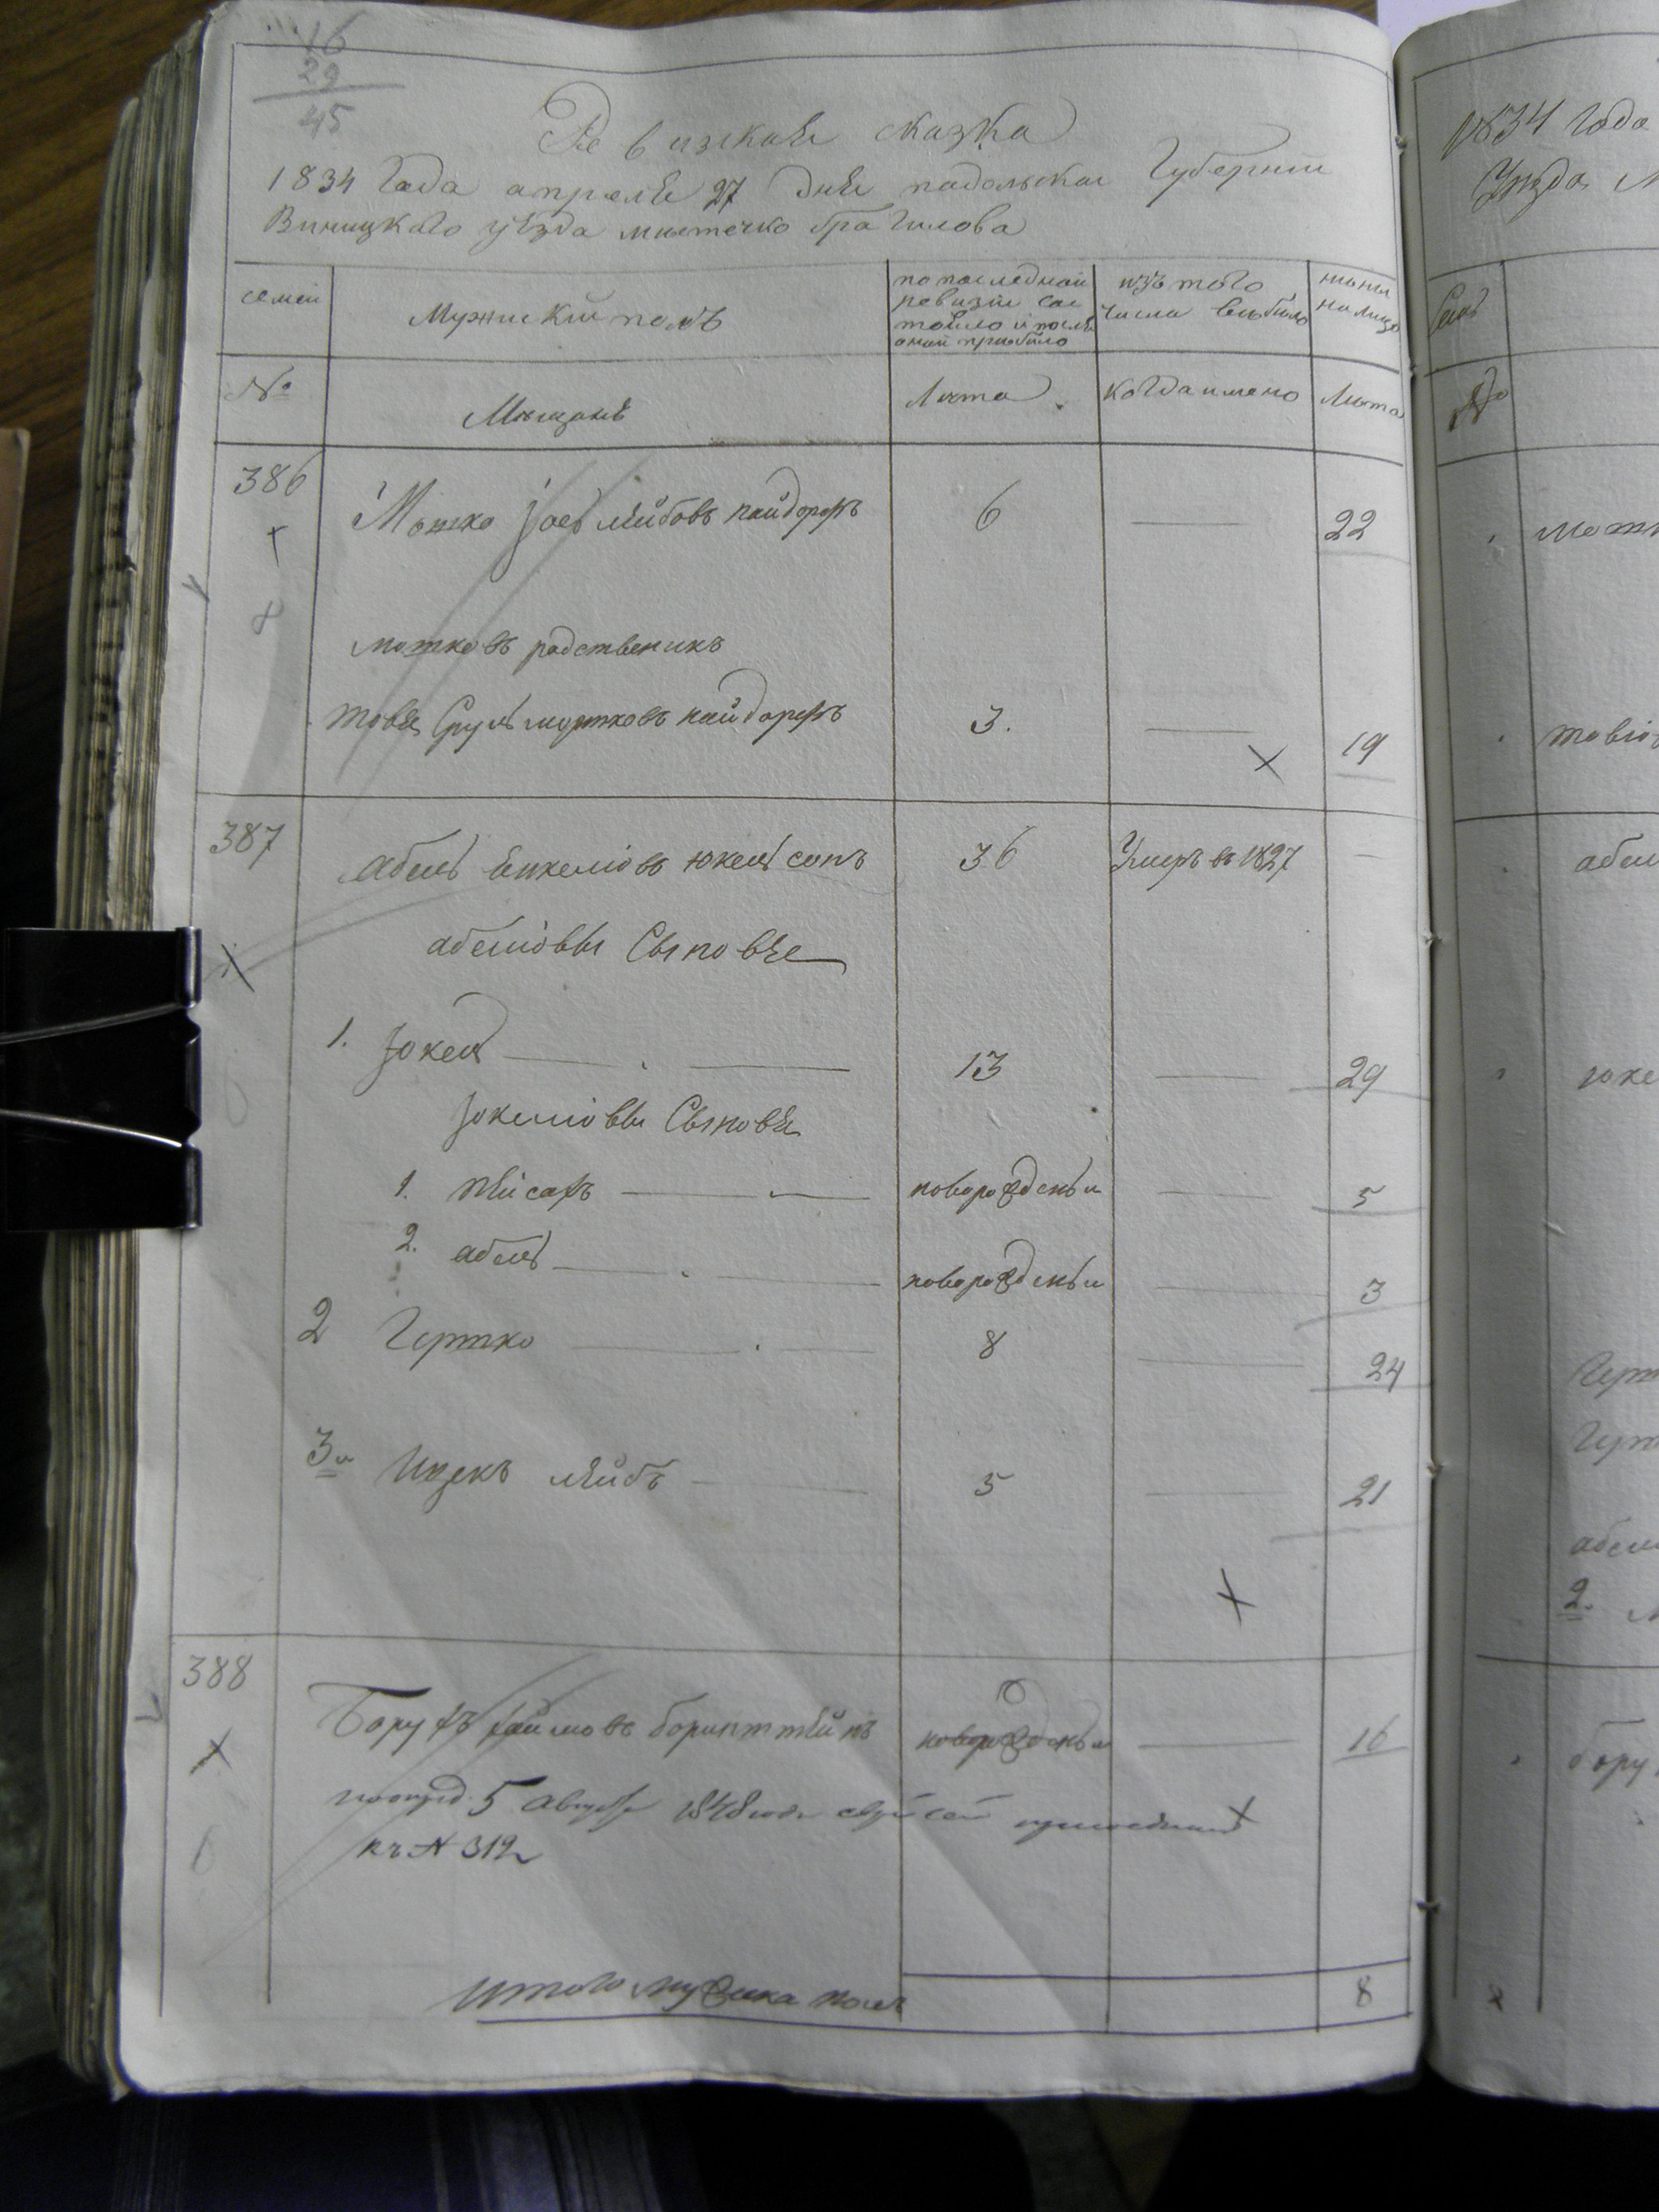 16
29
45
Ревизкая сказка
1834 Года апреля 27 дня падольскаи Губернии
Виницкаго уезда мистечко браилова
семеи
Мужискій полъ
по последнои ревизіи сос тояло и посля онаи прибыло
изъ того числа выбыло
ныны на лицо
№
Мищане
Лита
Когда имено
Лита
386
Мошко Іось Лейбовъ найдорфъ
6
22
мошковъ родственикъ
товя Сруль мошковъ найдорфъ
3.
19
387
абель Янкеліовъ юкельсонъ
36
Умеръ въ 1827
абеліовы Сыновя
1. Іокель
13
29
Іокеліовы Сыновя
1. Пейсахъ
новорожденыи
5
2. абель
новорожденыи
3
2 Гершко
8
24
3и Ицекъ лейбъ
5
21
388
Борухъ хаймовъ боринштейнъ
0
новорожденыи
16
5 август 1848
къ № 312
итого мужиска полъ
8
1834 Года
Уезда
№
мошк
товіо
абел
юке
Герш
абел
2.
бору